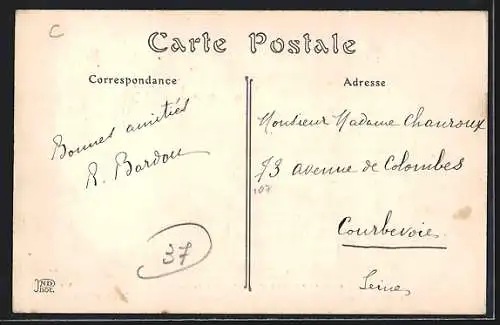 C
Carte Postale
Correspondance
Adresse
Bonnes amitiés
R. Bardou
Monsieur Madame Chauroux
73 avenue de Colombes
107
Courbevoie
Seine
37
ND
PHOT.